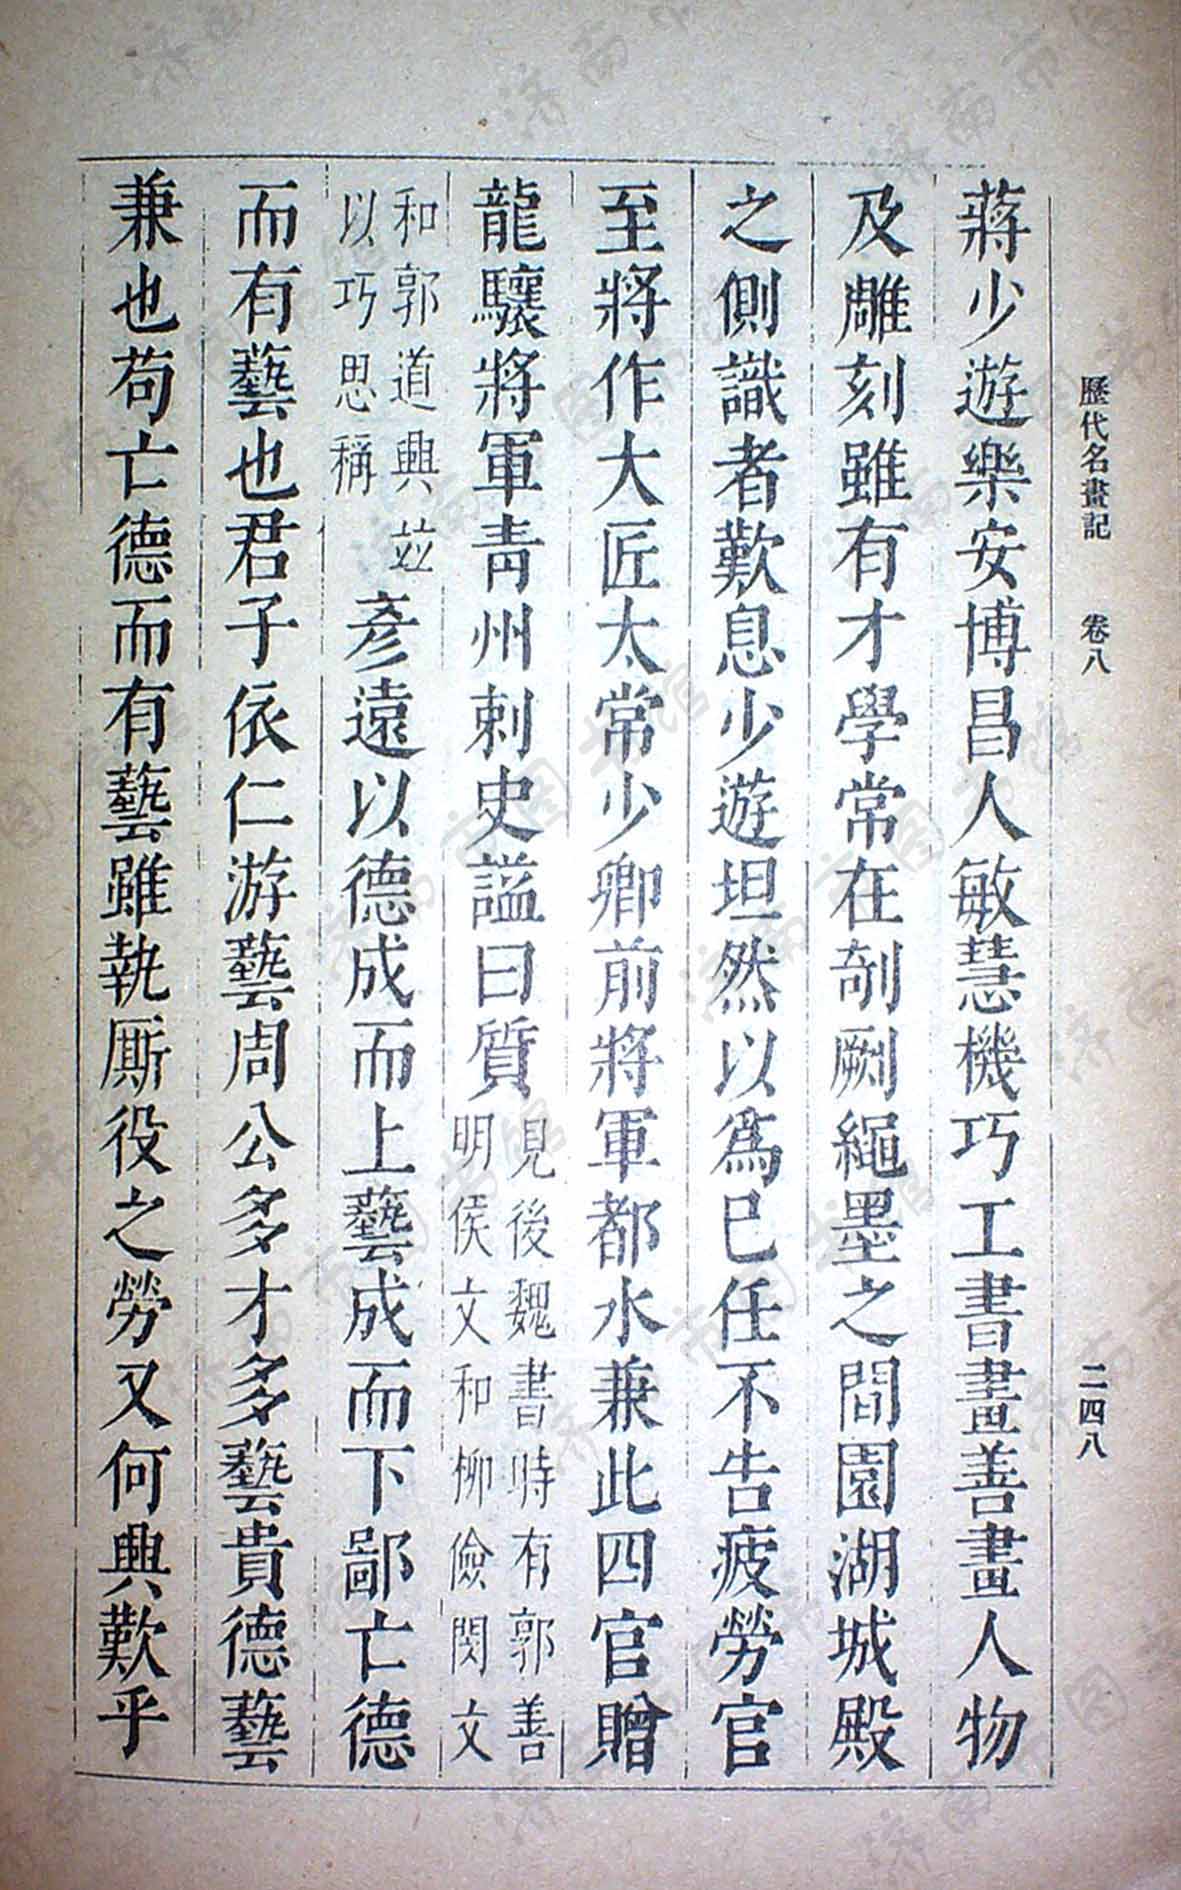 歷代名畫記　卷八　二四八
蔣少遊樂安博昌人敏慧機巧工書畫善畫人物
及雕刻雖有才學常在剞劂繩墨之間園湖城殿
之側識者歎息少遊坦然以爲已任不告疲勞官
至將作大匠太常少卿前將軍都水兼此四官贈
龍驤將軍青州刺史謚曰質見後魏書時有郭善明侯文和柳儉閔文
和郭道興竝以巧思稱彥遠以德成而上藝成而下鄙亡德
而有藝也君子依仁游藝周公多才多藝貴德藝
兼也苟亡德而有藝雖執厮役之勞又何興歎乎